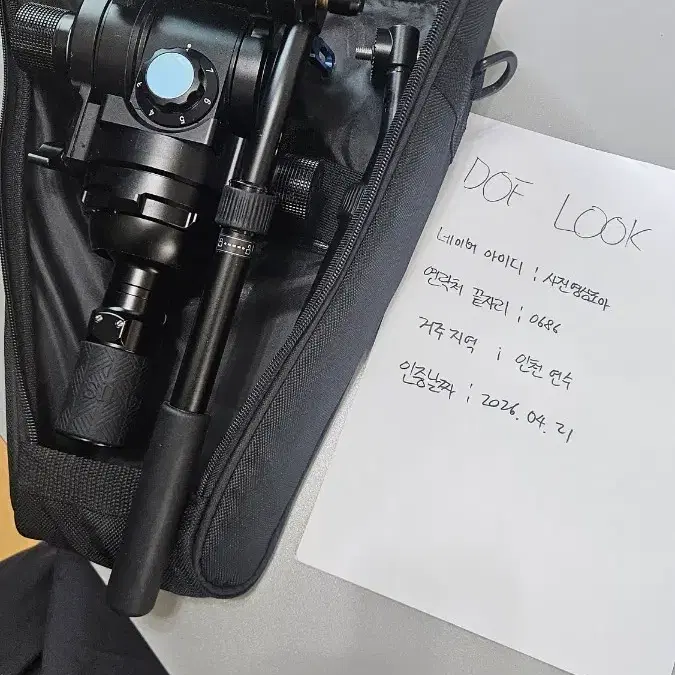 DOF LOOK
네이버 아이디 ; 사진영상조아
연락처 끝자리 ; 0686
거주 지역 ; 인천 연수
인증날짜 ; 2026. 04. 21
7
6
5